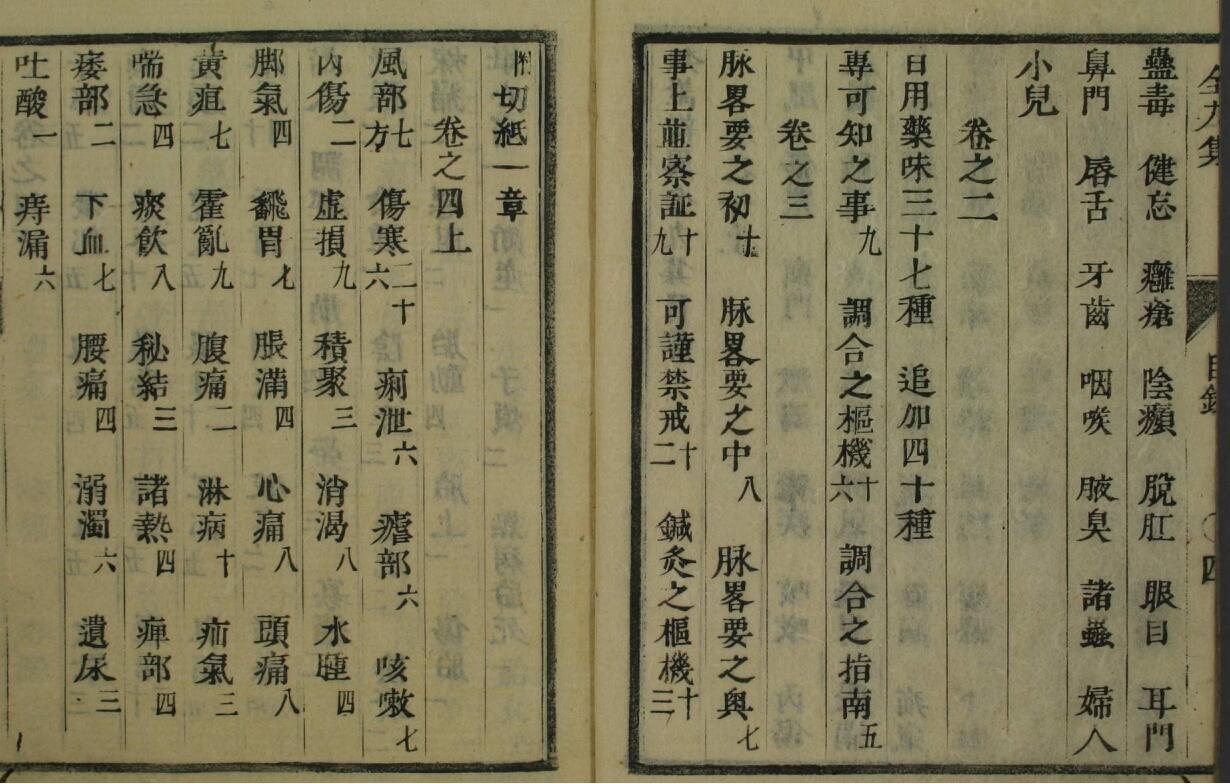 全九集 目録 四
蠱毒 健忘 癰瘡 陰㿗 脱肛 眼目 耳門
鼻門 唇舌 牙齒 咽喉 腋臭 諸蟲 婦人
小兒
卷之二
日用藥味三十七種 追加四十種
専可知之事九 調合之樞機十六 調合之指南五
卷之三
脉畧要之初十 脉畧要之中八 脉畧要之奥七
事上並察証十九 可謹禁戒十二 鍼灸之樞機十三
附切紙一章
卷之四上
風部七方 傷寒二十六 痢泄六 瘧部六 咳嗽七
内傷二 虚損九 積聚三 消渴八 水腫四
脚氣四 飜胃七 脹滿四 心痛八 頭痛八
黄疸七 霍亂九 腹痛二 淋病十 疝氣三
喘急四 痰飲八 秘結三 諸熱四 痺部四
痿部二 下血七 腰痛四 溺濁六 遺尿三
吐酸一 痔漏六